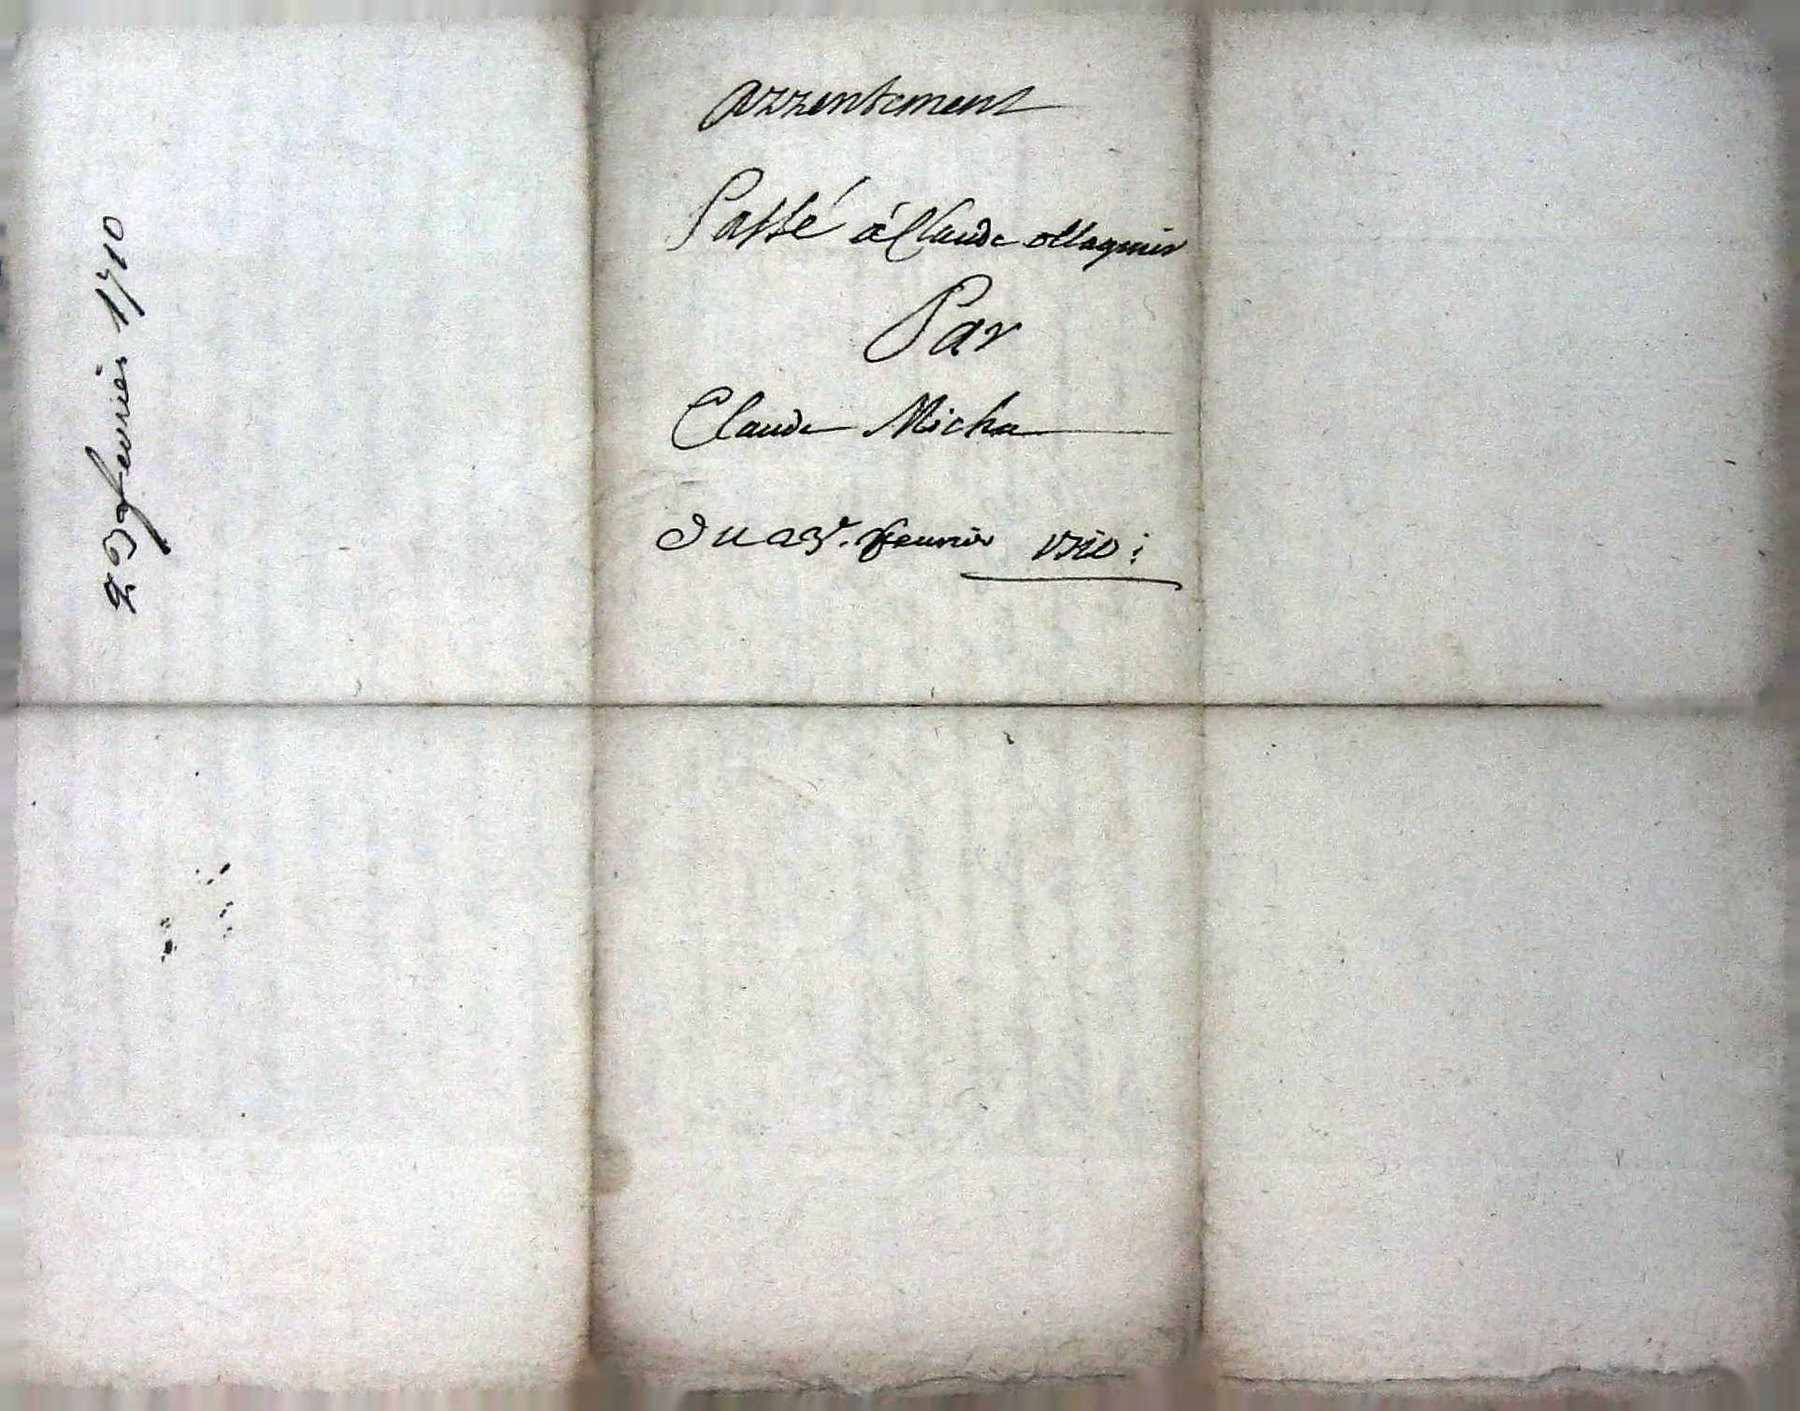 arrentement
Passé à Claude ollagnier
Par
Claude Micha
Du 23e. feurier 1710:
23 feurier 1710